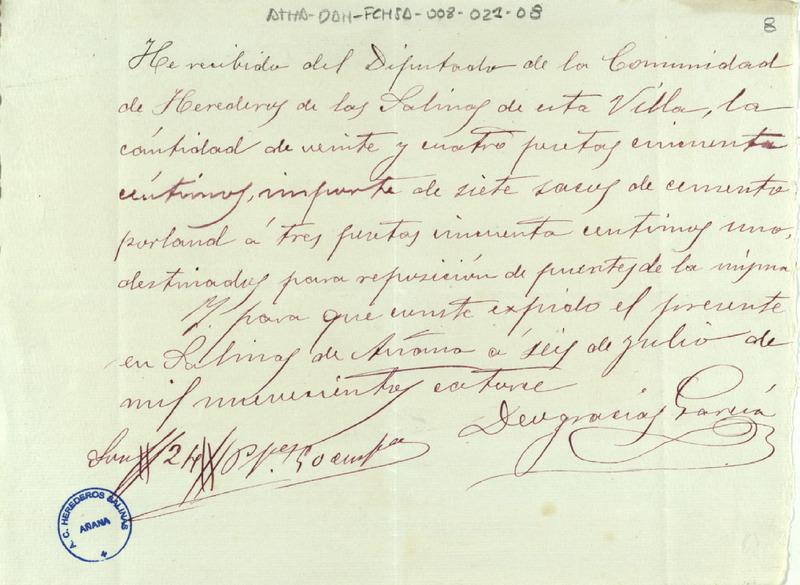 ATHA-DAH-FCHSA-008-021-08
8
He recibido del Diputado de la Comunidad
de Herederos de las Salinas de esta Villa, la
cántidad de veinte y cuatro pesetas cincuenta
céntimos, importe de siete sacos de cemento
porland á tres pesetas cincuenta centimos uno,
destinados para reposición de puentes de la misma
Y para que conste expido el presente
en Salinas de Añana á seis de julio de
mil nuevecientos catorce
Deogracias García
Son # 24 # Ptas 50
A. C. HEREDEROS SALINAS
AÑANA